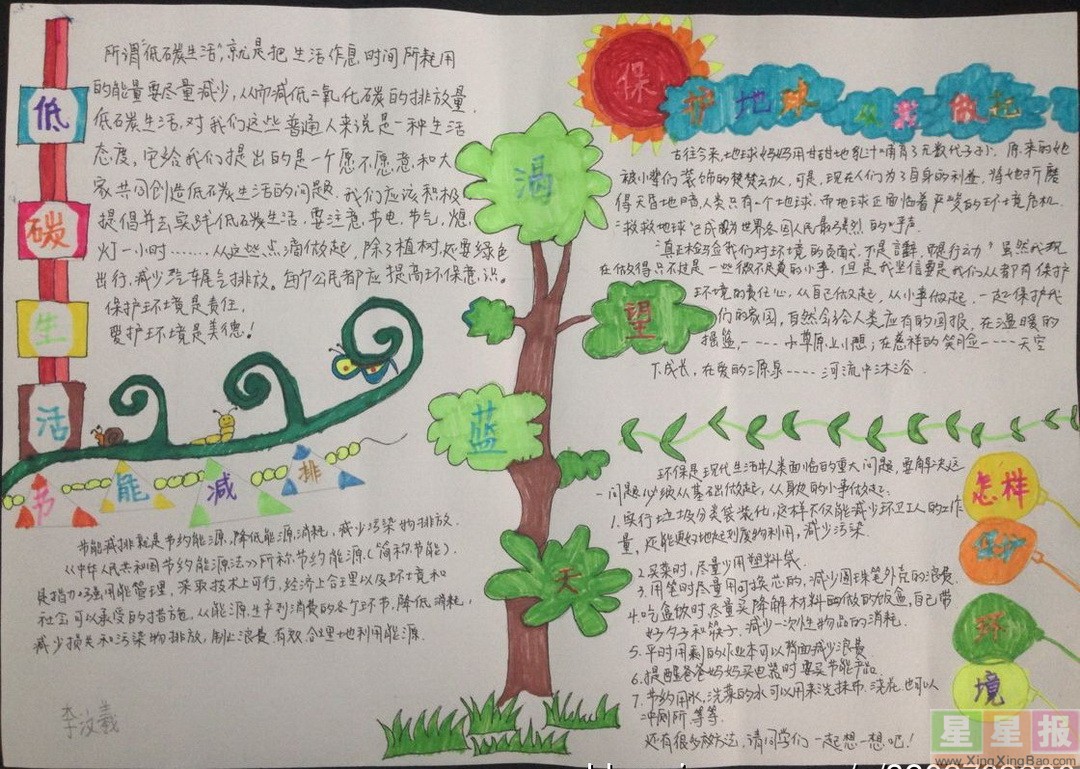 低碳生活
所谓"低碳生活",就是把生活作息时间所耗用
的能量要尽量减少,从而减低二氧化碳的排放量.
低碳生活,对我们这些普通人来说是一种生活
态度,它给我们提出的是一个愿不愿意和大
家共同创造低碳生活的问题.我们应该积极
提倡并去实践低碳生活,要注意节电,节气,熄
灯一小时……从这些点滴做起,除了植树,还要绿色
出行,减少汽车尾气排放。每个公民都应提高环保意识。
保护环境是责任,
爱护环境是美德!
节能减排
节能减排就是节约能源,降低能源消耗,减少污染物排放.
《中华人民共和国节约能源法》所称节约能源(简称节能).
是指加强用能管理,采取技术上可行,经济上合理以及环境和
社会可以承受的措施,从能源生产到消费的各个环节,降低消耗,
减少损失和污染物排放,制止浪费,有效合理地利用能源.
渴望蓝天
保护地球 从我做起
古往今来,地球妈妈用甘甜地乳汁哺育了无数代子孙.原来的她
被小辈们装饰的楚楚动人,可是,现在人们为了自身的利益,将她折磨
得天昏地暗人类只有一个地球,而地球正面临着严峻的环境危机.
"救救地球"已成为世界各国人民最强烈的呼声.
真正检验我们对环境的贡献不是言辞,而是行动"虽然我现
在做得只不过是一些微不足道的小事,但是我坚信要是我们人人都有保护
环境的责任心,从自己做起,从小事做起,一起保护我
们的家园,自然会给人类应有的回报,在温暖的
摇篮,-----小草原上小憩;在慈祥的笑脸-----天空
下成长,在爱的源泉-----河流中沐浴.
怎样保护环境
环保是现代生活中人类面临的重大问题,要解决这
一问题必须从基础做起,从身边的小事做起:
1.实行垃圾分类袋装化,这样不仅能减少环卫工人的工作
量,还能更好地起到废物利用,减少污染.
2.买菜时,尽量少用塑料袋.
3.用笔时尽量用可换芯的,减少圆珠笔外壳的浪费.
4.吃盒饭时尽量买降解材料的做的饭盒,自带
好勺子和筷子,减少一次性物品的消耗.
5.平时用剩的作业本可以背面减少浪费
6.提醒爸爸妈妈买电器时要买节能产品.
7.节约用水,洗菜的水可以用来洗抹布.浇花也可以
冲厕所,等等.
还有很多好方法,请同学们一起想一想吧!
李汶羲
星星报
www.XingXingBao.com